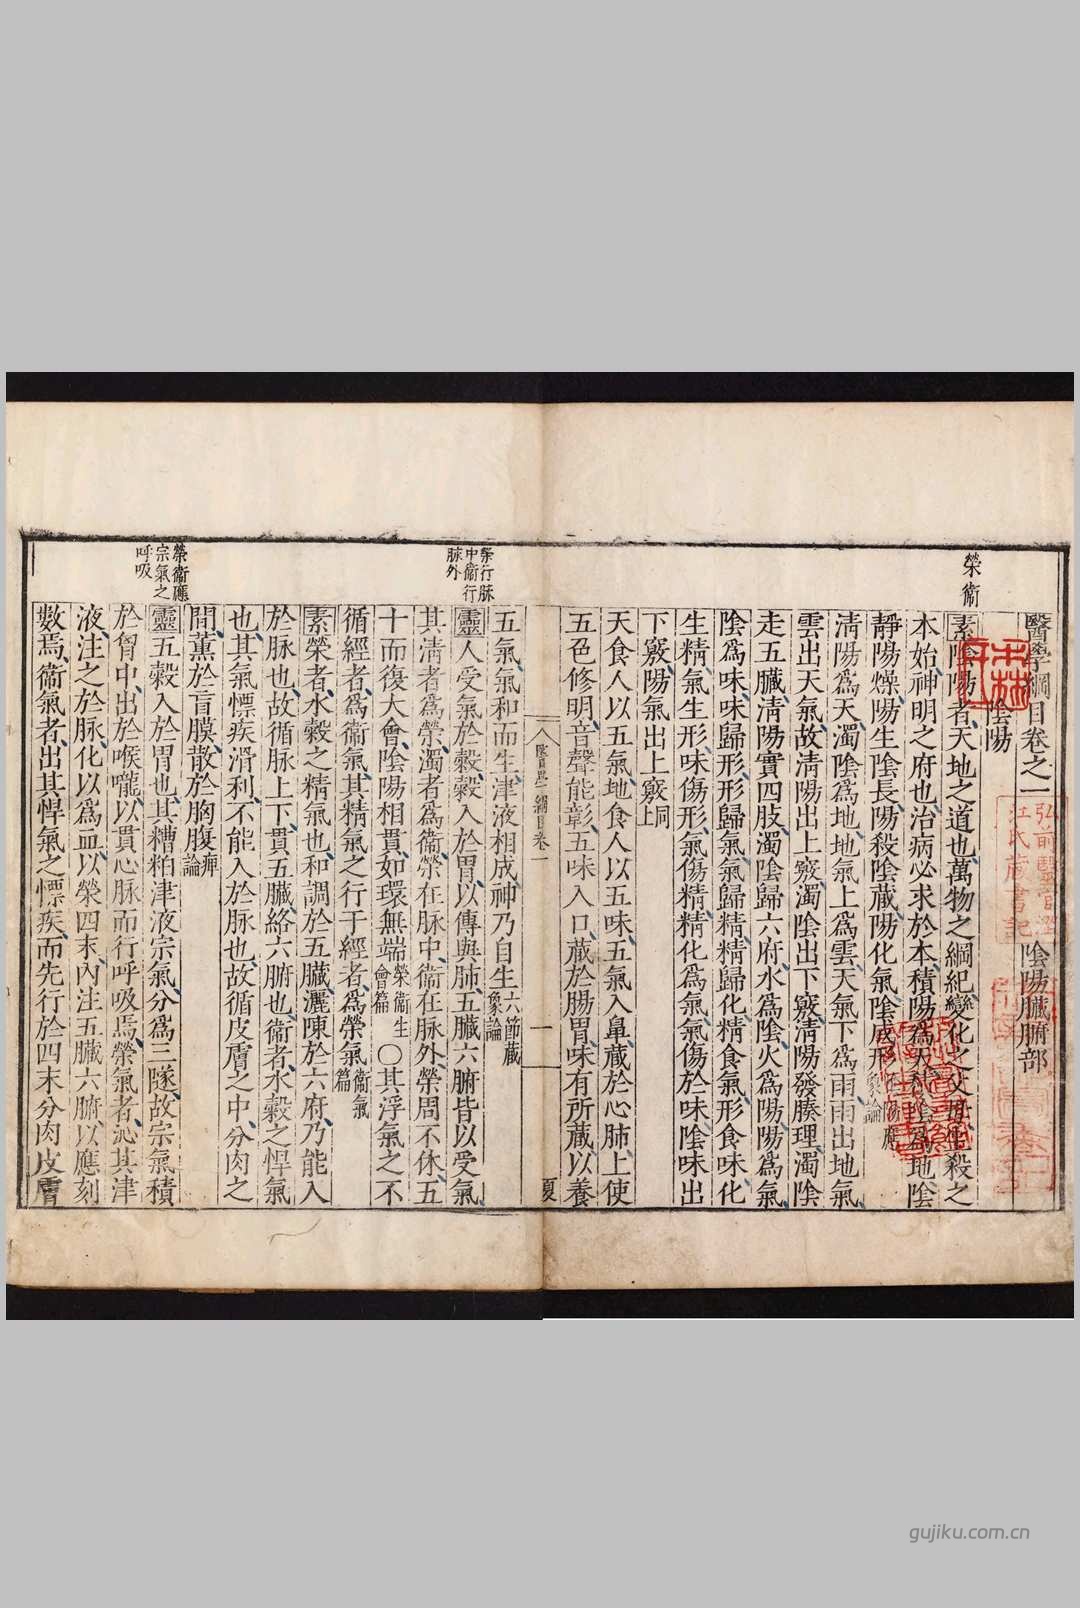 醫學綱目卷之一 陰陽臟腑部
陰陽
榮衞
素陰陽者天地之道也萬物之綱紀變化之父母生殺之
本始神明之府也治病必求於本積陽爲天積陰爲地陰
靜陽燥陽生陰長陽殺陰藏陽化氣陰成形
陰陽應
象論
淸陽爲天濁陰爲地地氣上爲雲天氣下爲雨雨出地氣
雲出天氣故淸陽出上竅濁陰出下竅淸陽發腠理濁陰
走五臟淸陽實四肢濁陰歸六府水爲陰火爲陽陽爲氣
陰爲味味歸形形歸氣氣歸精精歸化精食氣形食味化
生精氣生形味傷形氣傷精精化爲氣氣傷於味陰味出
下竅陽氣出上竅
同
上
天食人以五氣地食人以五味五氣入鼻藏於心肺上使
五色修明音聲能彰五味入口藏於腸胃味有所藏以養
醫學綱目卷一
一
夏
五氣氣和而生津液相成神乃自生
六節藏
象論
榮行脉
中衞行
脉外
靈人受氣於穀穀入於胃以傳與肺五臟六腑皆以受氣
其淸者爲榮濁者爲衞榮在脉中衞在脉外榮周不休五
十而復大會陰陽相貫如環無端
榮衞生
會篇
○其浮氣之不
循經者爲衞氣其精氣之行于經者爲榮氣
衞氣
篇
素榮者水穀之精氣也和調於五臟灑陳於六府乃能入
於脉也故循脉上下貫五臟絡六腑也衞者水穀之悍氣
也其氣慓疾滑利不能入於脉也故循皮膚之中分肉之
間薰於肓膜散於胸腹
痺
論
榮衞應
宗氣之
呼吸
靈五穀入於胃也其糟粕津液宗氣分爲三隧故宗氣積
於胷中出於喉嚨以貫心脉而行呼吸焉榮氣者泌其津
液注之於脉化以爲血以榮四末內注五臟六腑以應刻
數焉衞氣者出其悍氣之慓疾而先行於四末分肉皮膚
弘前醫官澀
江氏藏書記
gujiku.com.cn